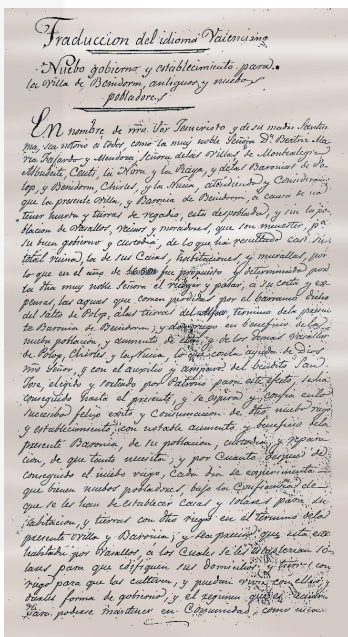 Traduccion del idioma Valenciano
Nuebo gobierno, y establecimiento, para
la villa de Benidorm, antiguos, y nuebos
pobladores
En nombre de nro. Sor. Jesucristo, y de su madre Santisi-
ma, sea notorio a todos, como la muy noble Señora Da. Beatriz de la
Fajardo y Mendoza, Señora de las Villas, de Montealegre
y de las Baronias de Po-
lop, y Benidorm, Chirles, y la Nucia, atendiendo y Considerando
que la presente Villa, y Baronia de Benidorm, a causa de no
tener huerta y tierras de regadio, esta despoblada, y sin la po-
blacion de Vasallos, vecinos y moradores, que son menester, pa.
su buen gobierno y custodia, de lo que ha resultado casi su
total ruina, la de sus Casas, habitaciones, y murallas, por
lo que en el año de fue propuesto y determinado por
la dha muy noble Señora el y pasar, a su costa y ex-
pensas, las aguas que corren perdidas por el barranco dicho
del Salto de Polop, a las tierras del termino de la presen-
te Baronia de Benidorm; y riego en beneficio de la
nueba poblacion, y aumento de y de los demas Vasallos
de Polop, Chirles y la Nucia, lo que con la ayuda de Dios
nro Señor, y con el auxilio y amparo del bendito San
Jose, elegido y sorteado por Patron para este efeto, se ha
conseguido hasta el presente, y se espera y confia en el
sucesibo feliz exito, y Consumacion de dho nuebo riego
y establecimiento, con notable aumento y beneficio de la
presente Baronia, de su poblacion, custodia, y repara-
cion, de que tanto necesita, y por cuanto despues de
conseguido el nuebo riego, Cada dia se experimenta
que bienen nuebos pobladores, bajo la Confianza de
que se les han de establecer Casas y solares para su
habitacion, y tierras con dho riego en el termino de la
presente Villa y Baronia, y sea preciso que esta este
habitada por Vasallos, a los cuales se les establezcan so-
lares para que edifiquen sus domicilios, y tierras con
riego para que las cultiven, y puedan vivir con ellos, y
darles forma de gobierno, y el regimen que es
para poderse mantener en Comunidad, como